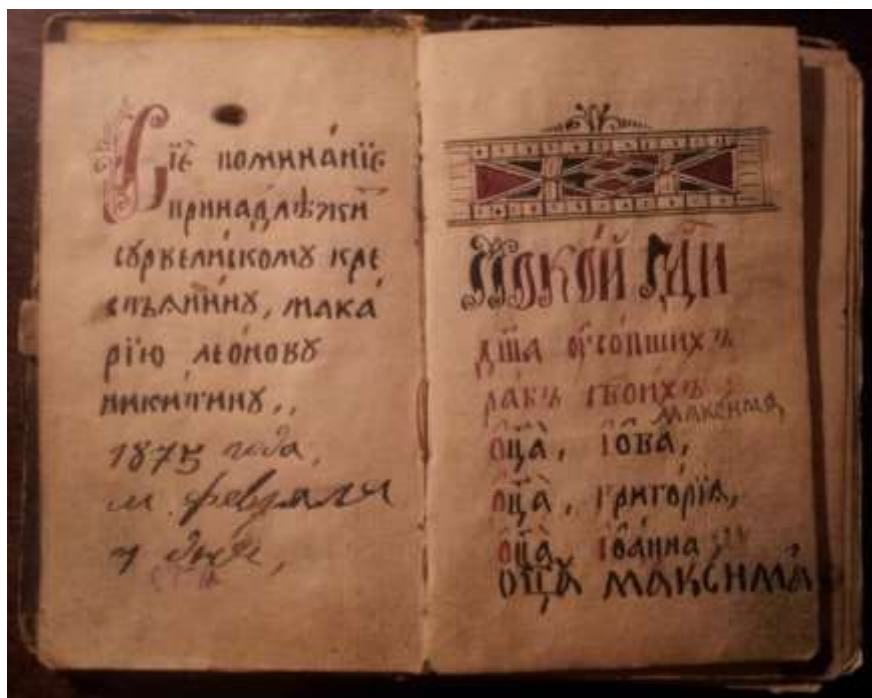 Сїѐ помина́нїе
принадлѣжи́т
суркели́скомꙋ кре
стьѧнинꙋ, мака
рїю леѡ́новꙋ
ники́тинꙋ,,
1875 года,
м. февраля
дня,
Покѡ́й гдⷭ҇и
дш҃а ᲂу҆со́пшихъ
ра́бъ твои́хъ
максима
ѻц҃а, і҆́ѡва,
ѻц҃а, григо́рїа,
ѻц҃а, і҆ѡа́нна,
ѻц҃а максима